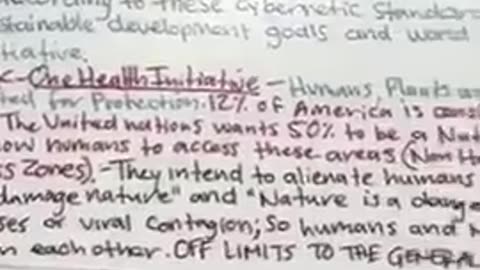 according to these cybernetic Standar
stainable development goals and world
tiative.
C-One Health Initiative - Humans, Plants a
ted for Protection. 12% of America is cons
The United nations wants 50% to be a Nat
ow humans to access these areas (Non H
ss Zones). - They intend to alienate humans
damage nature" and "Nature is a dange
ses or viral Contagion; So humans and N
n each other. OFF LIMITS TO THE GENERAL